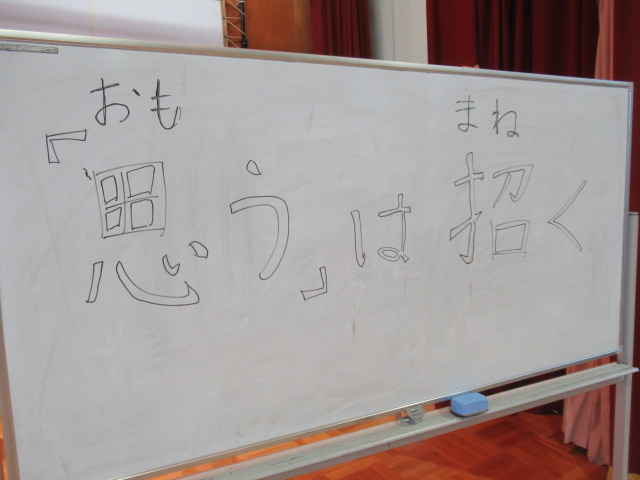 おも まね
「思う」は招く